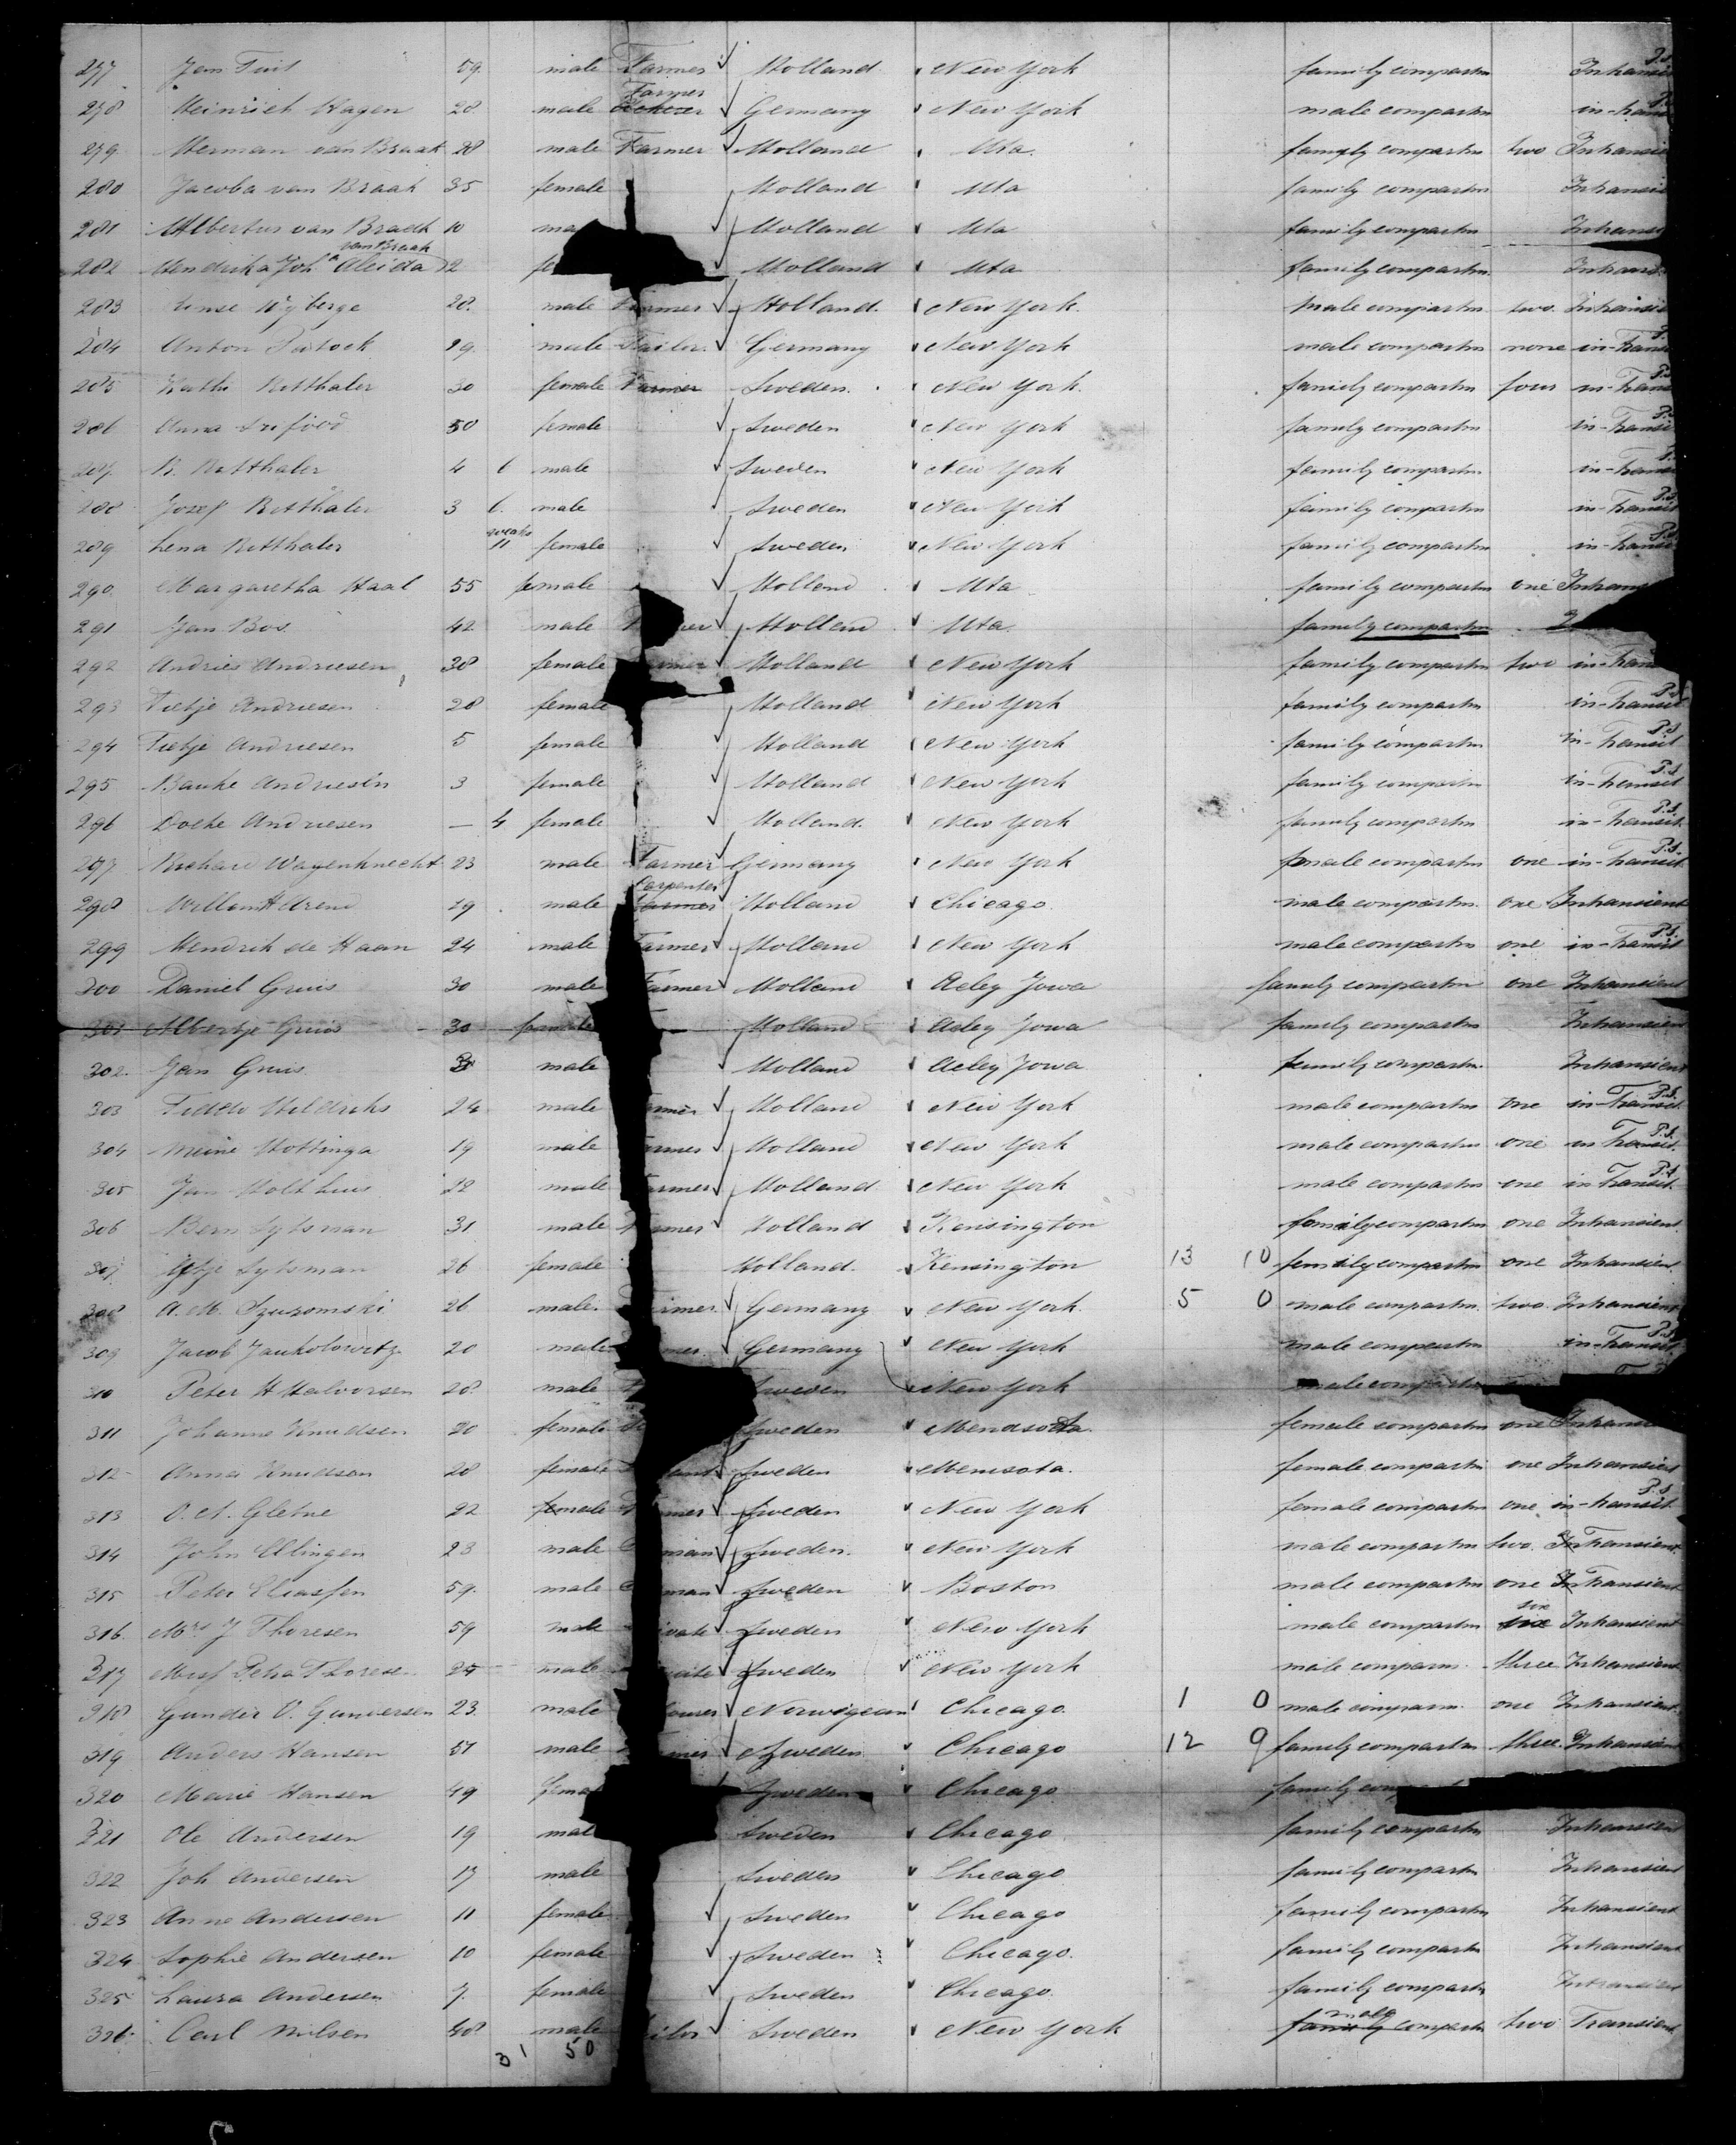 277 Jan Tuit 59 male Farmer Holland New York family compartm P.s.
278 Heinrich Hagen 28 male Farmer Germany New York male compartm in-trans
279 Herman van Braak 38 male Farmer Holland Uta family compartm two Intransi
280 Jacoba van Braak 35 female Holland Uta family compartm Intransi
281 Albertus van Braak 10 ma Holland Uta family compartm Intransi
van Braak
282 Hendrika Joha Aleida 2 fe Holland Uta family compartm Intransi
283 Wyberge 28 male Farmer Holland New York male compartm two Intransi
284 Anton 29 male Tailor Germany New York male compartm none in-trans
285 Kath Rotthaler 30 female Farmer Sweden New York family compartm four in-trans
286 Anna 50 female Sweden New York family compartm in-transi
287 R. Rotthaler 4 6 male Sweden New York family compartm in-trans
288 Josef Rotthaler 3 6 male Sweden New York family compartm in-transit
289 Lena Rotthaler weaks 11 female Sweden New York family compartm in-transi
290 Margaretha Haal 55 female Holland Uta family compartm one Intrans
291 Jan Bos 42 male Holland Uta family compartm
292 Andries Andriesen 38 female Holland New York family compartm two in-trans
293 Tietje Andriesen 28 female Holland New York family compartm in-transit P.s.
294 Tietje Andriesen 5 female Holland New York family compartm in-transit P.s.
295 Bauke Andriesen 3 female Holland New York family compartm in-transit P.s.
296 Doeke Andriesen — 4 female Holland New York family compartm in-transit P.s.
297 Richard Wagenknecht 23 male Farmer Germany New York male compartm one in-transit P.s.
Carpenter
298 Willem Arend 29 male Farmer Holland Chicago male compartm one Intransient
299 Hendrik de Haan 24 male Farmer Holland New York male compartm one in-transit P.s.
300 Daniel Gruis 30 male Farmer Holland Acley Jowa family compartm one Intransient
301 Albertje Gruis 30 female Holland Acley Jowa family compartm Intransien
302 Jan Gruis male Holland Acley Jowa family compartm Intransient
303 Hildriks 24 male armer Holland New York male compartm one in-Transit P.s.
304 Meine Hottinga 19 male armer Holland New York male compartm one in Transit P.s.
305 Jan Holthuis 22 male armer Holland New York male compartm one in Transit P.s.
306 Bern Sytsman 31 male armer Holland Kensington family compartm one Intransient
307 Sytsman 26 female Holland Kensington 13 10 family compartm one Intransien
308 A. M. 26 male armer Germany New York 5 0 male compartm two Intransient
309 Jacob Jankolowitz 20 male mer Germany New York male compartm in-Transit P.s.
310 Peter H Halvorsen 28 male Sweden New York male compartm
311 Johanne Knudsen 20 female Sweden Mendsotta female compartm one Intransi
312 Anna Knudsen 28 female Sweden Menisota female compartm one Intransient
313 O. A. Gletne 22 female mer Sweden New York female compartm one in-transit P.s.
314 John Ellingen 23 male man Sweden New York male compartm two Intransient
315 Peter Eliassen 59 male man Sweden Boston male compartm one InTransient
316 Mrs J Thoresen 59 male ivate Sweden New York male compartm six Intransient
317 Miss Petra Thoresen 25 male Sweden New York male compartm three Intransient
318 Gunder O. Gundersen 23 male Norwigean Chicago 1 0 male compartm one Intransient
319 Anders Hansen 51 male Sweden Chicago 12 9 family compartm three Intransient
320 Marie Hansen 49 fema Sweden Chicago family com
321 Ole Andersen 19 mal Sweden Chicago family compartm Intransient
322 Joh Andersen 17 male Sweden Chicago family compartm Intransient
323 Anne Andersen 11 female Sweden Chicago family compartm Intransient
324 Sophie Andersen 10 female Sweden Chicago family compartm Intransient
325 Laura Andersen 7 female Sweden Chicago family compartm Intransient
male
326 Carl Nilsen 48 male ilor Sweden New York family compartm two Transient
31 50